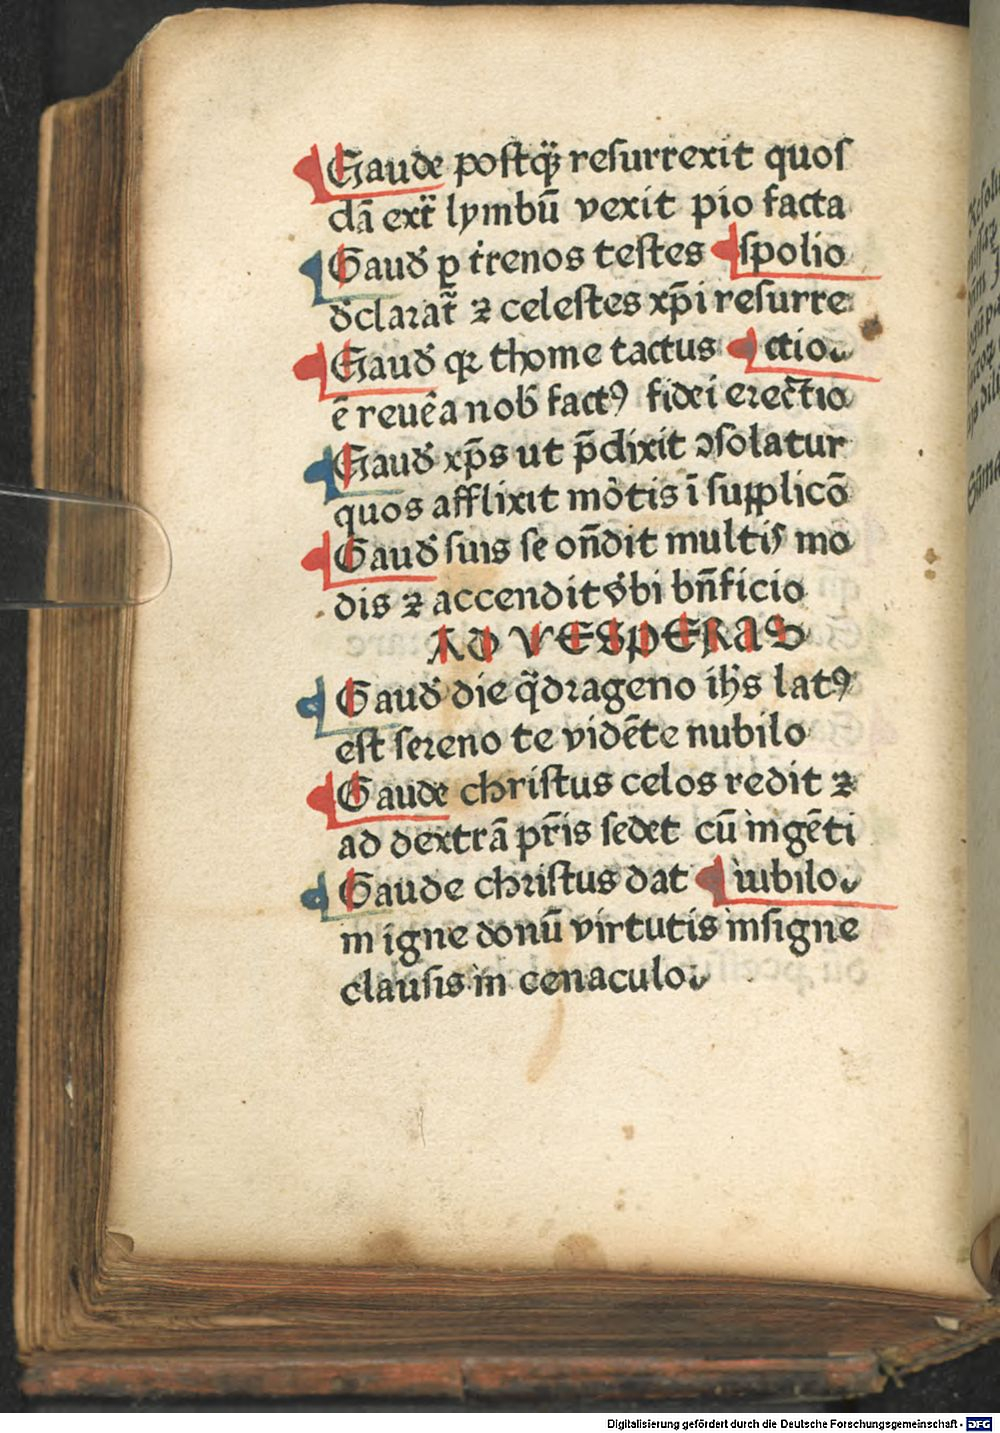 Gaude postq̃ꝫ resurrexit quos
dã ext̃ lymbũ vexit pio facta
Gaud̾ ꝑ trenos testes spolio
d̾claꝛat̃ ꝛ celestes xp̃i resurre
Gaud̾ qꝛ thome tactus ctio
ẽ reuẽa nob̾ factꝰ fidei eꝛectio
Gaud̾ xp̃s ut p̃dixit ↄsolatur
quos afflixit mõtis ĩ supplicõ
Gaud̾ suis se on̄dit multis mo
dis ꝛ accendit bñficio
AD VESPERAS
Gaud̾ die q̃dꝛageno ihs latꝰ
est seꝛeno te vidẽte nubilo
Gaude christus celos redit ꝛ
ad dextrã pr̃is sedet cũ ingẽti
Gaude chꝛistus dat iubilo
in igne donũ virtutis insigne
clausis in cenaculo
Digitalisierung gefördert durch die Deutsche Forschungsgemeinschaft - DFG